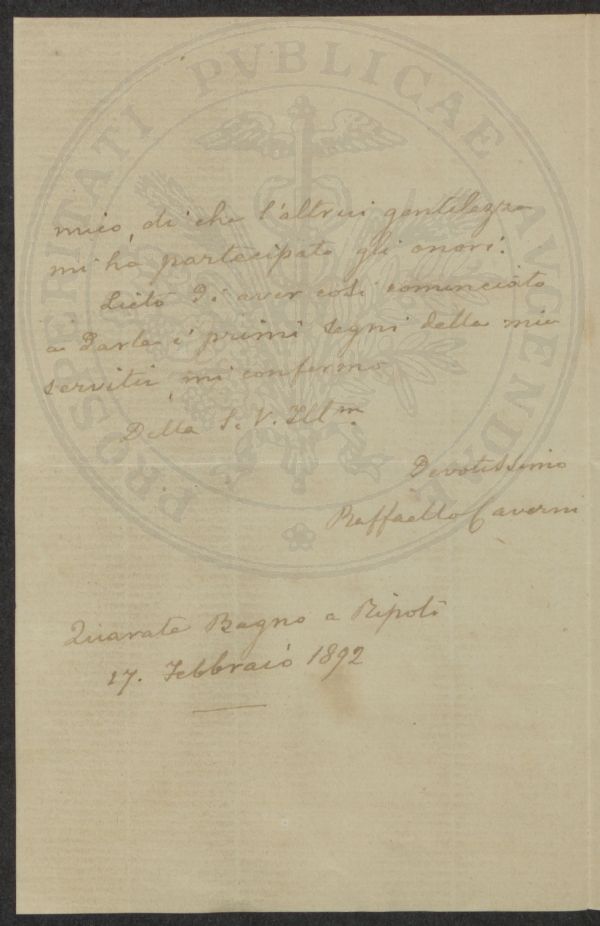 PROSPERITATI PVBLICAE AVGENDAE
mico, di che l'altrui gentilezza
mi ha partecipato gli onori.
Lieto di aver così cominciato
a darle i primi segni della mia
servitù, mi confermo
Della S. V. Illm.
Devotissimo
Raffaello Caverni
Quarate Bagno a Ripoli
17. Febbraio 1892